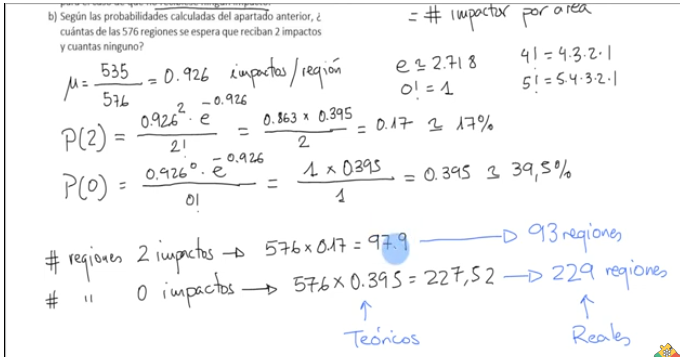 = # impactos por area
b) Según las probabilidades calculadas del apartado anterior, ¿
cuántas de las 576 regiones se espera que reciban 2 impactos
y cuantas ninguno?
μ = 535/576 = 0.926 impactos/región
e ≃ 2.718
4! = 4.3.2.1
0! = 1
5! = 5.4.3.2.1
P(2) = 0.926² · e^-0.926 / 2! = 0.863 x 0.395 / 2 = 0.17 ≃ 17%
P(0) = 0.926⁰ · e^-0.926 / 0! = 1 x 0395 / 1 = 0.395 ≃ 39,5%
# regiones 2 impactos → 576 x 0.17 = 97.9 → 93 regiones
# " 0 impactos → 576 x 0.395 = 227,52 → 229 regiones
↑ ↑
Teóricos Reales